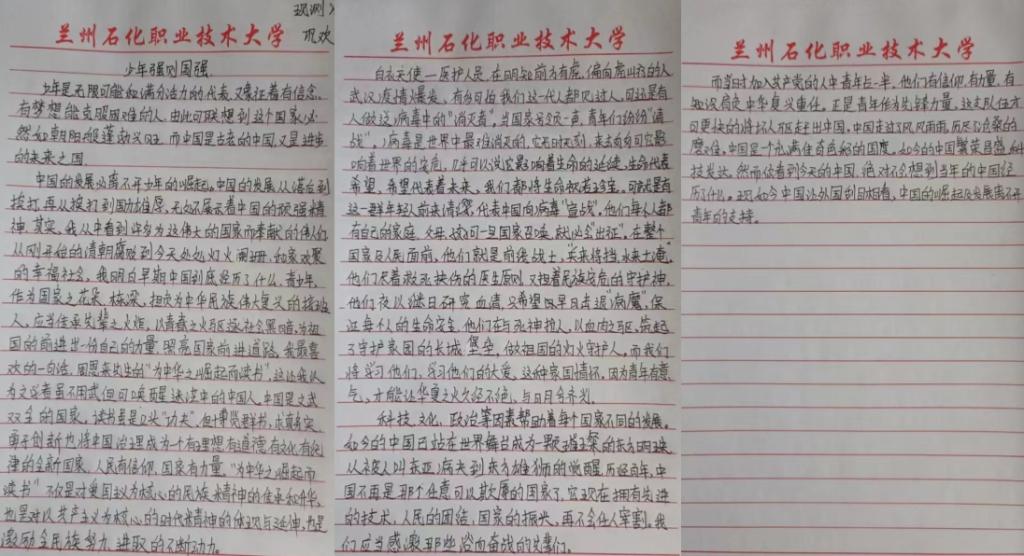 现测
兰州石化职业技术大学
少年强则国强
少年是无限可能和满分活力的代表,又象征着有信念、
有梦想能克服困难的人,由此可联想到这个国家必
然如朝阳般蓬勃兴旺,而中国是古老的中国,又是进步
的未来之国。
中国的发展必离不开少年的崛起,中国的发展从落后到
挨打,再从挨打到国力雄厚,无处不展示着中国的顽强精
神,其实,我从中看到许多为这伟大的国家而奉献的伟人们
从刚开始的清朝腐败到今天处处灯火阑珊,和家欢聚
的幸福社会,我明白早期中国到底经历了什么,青少年,
作为国家之花朵、栋梁,担负为中华民族伟大复兴的接班
人,应当传承先辈之火炬,以青春之火驱逐社会黑暗,为祖
国的前进出一份自己的力量,照亮国家前进道路。我最喜
欢的一句话,周恩来先生的“为中华之崛起而读书”,这让我认
为文学者虽不用武但可唤醒迷茫中的中国人,中国是文武
双全的国家,读书虽是口头“功夫”,但博览群书,求真务实,
勇于创新也将中国治理成为一个有理想有道德有文化有纪
律的全新国家。人民有信仰,国家有力量,“为中华之崛起而
读书”不仅是对爱国主义为核心的民族精神的传承和升华,
也是对以共产主义为核心的时代精神的体现与延伸,也是
激励全民族努力、进取的不断动力。
兰州石化职业技术大学
白衣天使—医护人员,在明知前方有虎,偏向虎山行的人
武汉疫情爆发,有多可怕我们这一代人都见过,可还是有
人做这病毒中的“消灭者”,当国家号令一声,青年们纷纷“请
战”,病毒是世界中最难消灭的,它无时无刻,来去自如它影
响着世界的安危,几乎可以说它影响着生命的延续,生命代表
希望,希望代表着未来,我们都将生命视若珍宝,可就是有
这一群年轻人前来请缨,代表中国向病毒“宣战”,他们每个人都
有自己的家庭、父母、孩子可一旦国家召唤,就必会“出征”,在整个
国家及人民面前,他们就是前线战士,“兵来将挡,水来土淹”,
他们凭着救死扶伤的医生原则又担着民族安危的守护神,
他们夜以继日研究血清,只希望以早日击退“病魔”,保
证每个人的生命安全,他们在与死神抢人,以血肉之躯,筑起
了守护家国的长城、堡垒,做祖国的灯火守护人,而我们
将学习他们,学习他们的大爱,这种家国情怀,因为青年有意
气,才能让华夏之火久经不绝,与日月合齐光。
科技、文化、政治等因素帮助着每个国家不同的发展,
如今的中国已站在世界舞台成为一颗璀璨的东方明珠
从被人叫东亚病夫到东方雄狮的觉醒,历经百年,中
国不再是那个任意可以欺辱的国家了,它现在拥有先进
的技术,人民的团结,国家的振兴,再不会任人宰割。我
们应当感激那些浴血奋战的先辈们。
兰州石化职业技术大学
而当时加入共产党的人中青年占一半,他们有信仰,有力量,有
知识肩负中华复兴重任,正是青年作为先锋力量,这支队伍方
可更快的将坏人驱赶出中国,中国走过了风风雨雨,历尽了沧桑的
磨难,中国是一个充满传奇色彩的国度,如今的中国繁荣昌盛,科
技发达,然而你看到今天的中国,绝对不会想到当年的中国经
历了什么,现如今中国让外国刮目相看,中国的崛起及发展离不开
青年的支持。